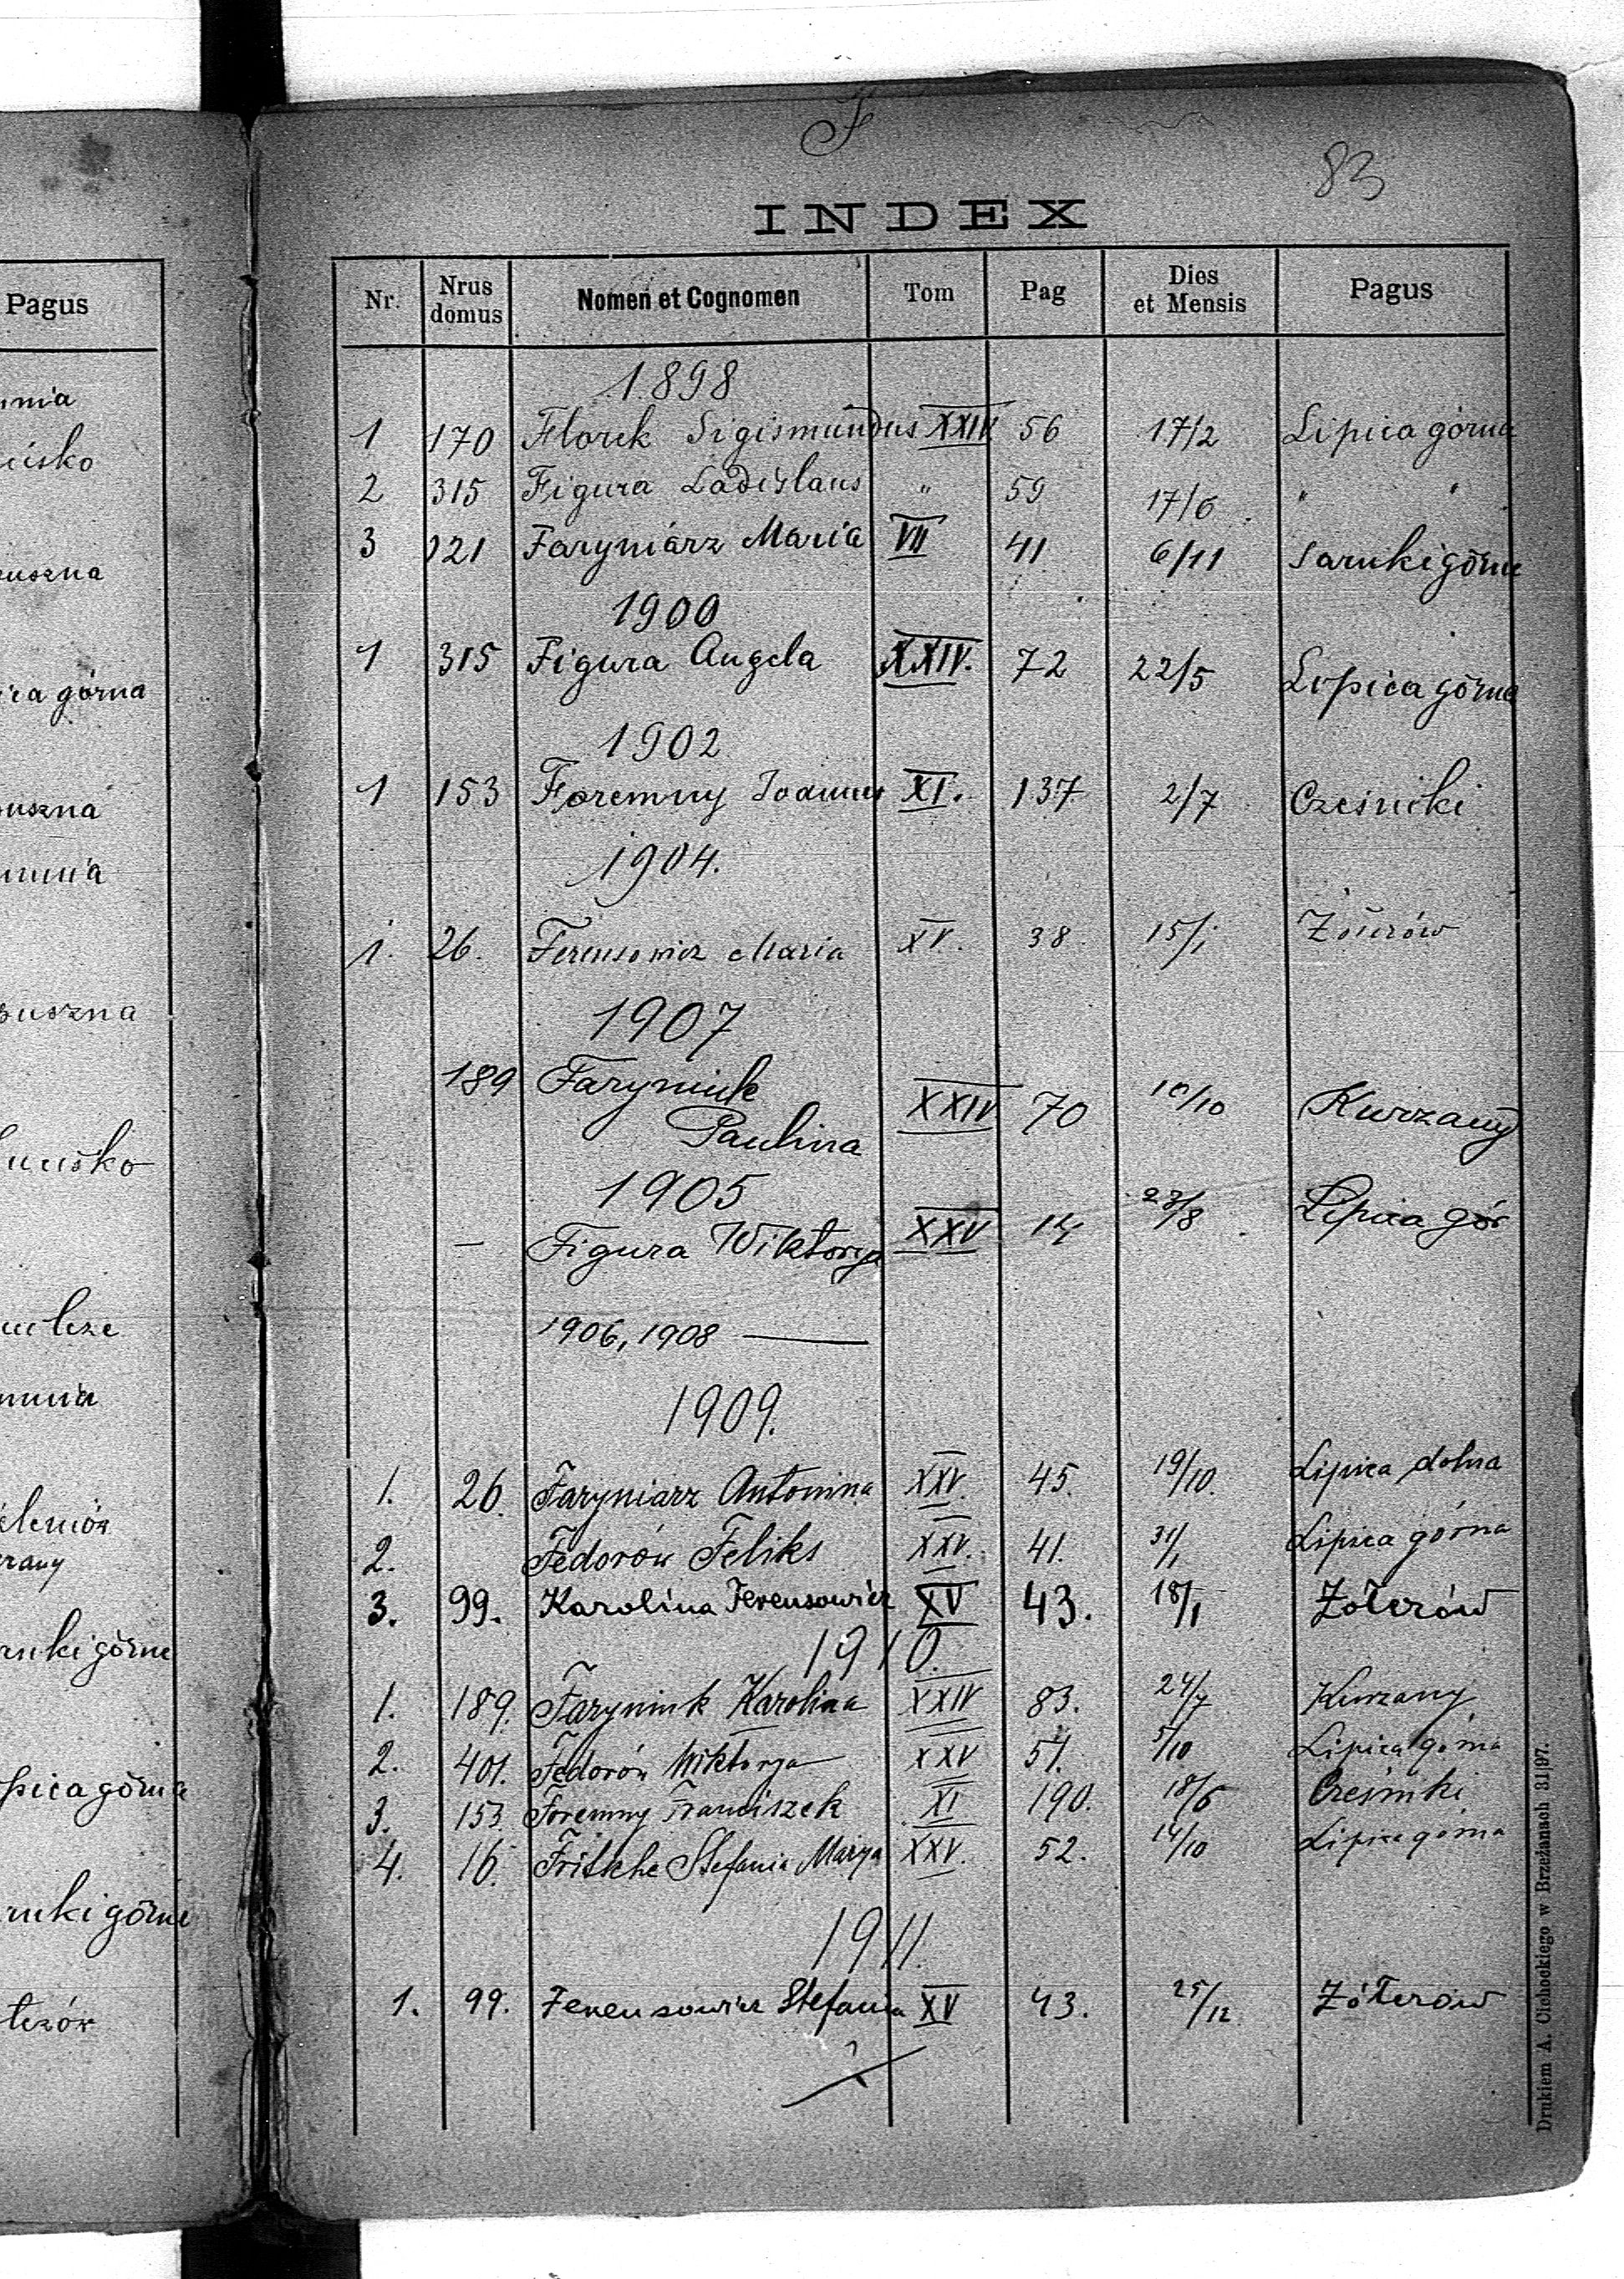 Pagus
uszna
ica górna
uszna
uszna
rany
ruki górne
pica górna
ruki górne
F
83
INDEX
Nr. Nrus domus Nomen et Cognomen Tom Pag Dies et Mensis Pagus
1898
1 170 Florek Sigismundus XXIV 56 17/2 Lipica górna
2 315 Figura Ladislaus " 59 17/6 " "
3 121 Faryniarz Maria VII 41 6/11 Sarnki górne
1900
1 315 Figura Angela XXIV. 72 22/5 Lipica górna
1902
1 153 Foremny Joannes XI. 137 2/7 Cześniki
1904.
1. 26. Ferensowicz Maria XV. 38 15/1 Żółczów
1907
189 Faryniuk
Paulina XXIV 70 10/10 Kurzany
1905
— Figura Wiktorya XXV 14 /8 Lipica gór
1906, 1908 —
1909.
1. 26 Faryniarz Antonina XXV. 45. 19/10. Lipica dolna
2. Fedorów Feliks XXV. 41. 31/1 Lipica górna
3. 99. Karolina Ferensowicz XV 43. 18/1 Żółczów
1910.
1. 189. Faryniuk Karolina XXIV 83. 24/7 Kurzany
2. 401. Fedorów Wiktorya XXV 51. 5/10 Lipica górna
3. 153 Foremny Franciszek XI 190. 18/6 Cześniki
4. 16. Fritsche Stefania Marya XXV. 52. 14/10 Lipica górna
1911.
1. 99. Ferensowicz Stefania XV 43. 25/12 Żółczów
Drukiem A. Cichockiego w Brzeżanach 31|97.